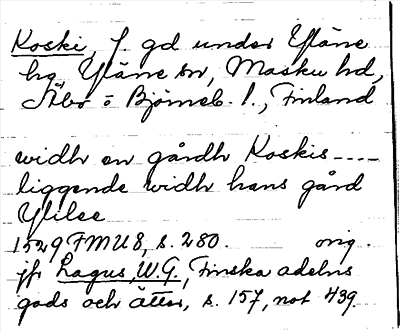 Koski, f. gd under Yläne
hg, Yläne sn, Masku hd,
Åbo o Björneb. l., Finland
widh en gårdh Koskis----
liggende widh hans gård
Ylilee
1529 FMU 8, s. 280. orig.
jfr Lagus, W.G., Finska adelns
gods och ätter, s. 157, not 439.